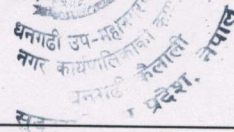 धनगढी उप-महान
नगर कार्यपालिकाको का
धनगढी कैलाली
प्रदेश, नेपाल